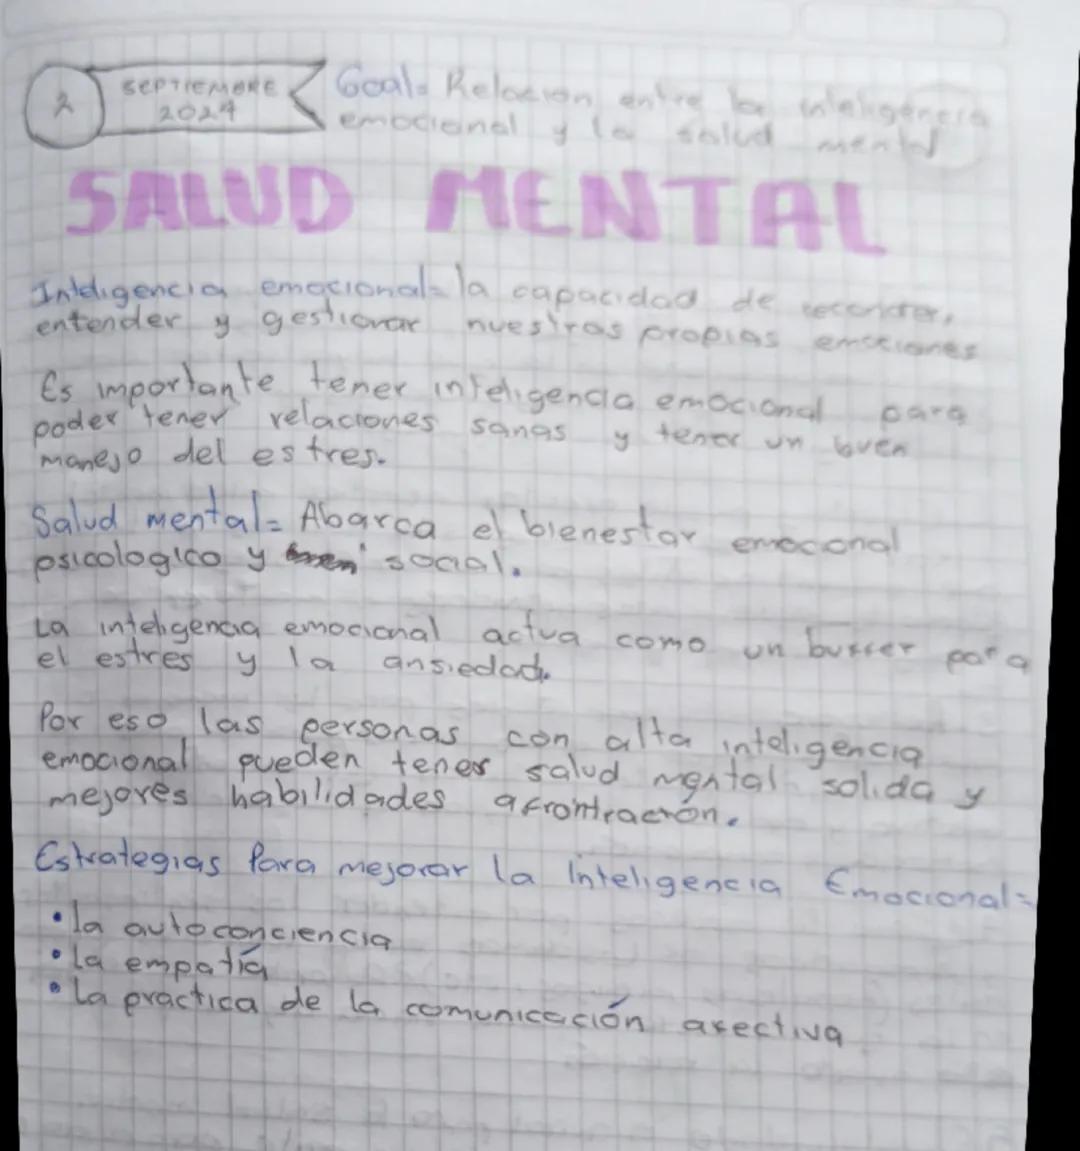 2 SEPTIEMBRE 2024
Goal= Relacion entre la inteligencia
emocional y la salud mental
SALUD MENTAL
Inteligencia emocional= la capacidad de reconocer,
entender y gestionar nuestras propias emociones
Es importante tener inteligencia emocional para
poder tener relaciones sanas y tener un buen
manejo del estres.
Salud mental= Abarca el bienestar emocional
psicologico y social.
La inteligencia emocional actua como un buffer para
el estres y la ansiedad.
Por eso las personas con alta inteligencia
emocional pueden tener salud mental solida y
mejores habilidades afrontración.
Estrategias Para mejorar la Inteligencia Emocional=
• la autoconciencia
• la empatía
• La practica de la comunicación afectiva